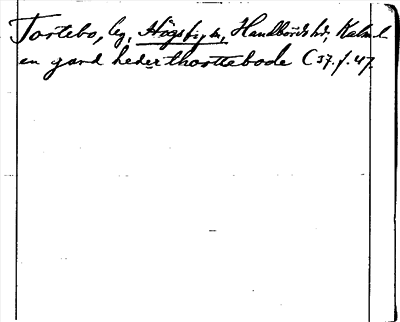 Torlebo, by, Högsby sn, Handbörds hd, Kalmar l
en gard heder thorttebode C 37. f. 47.